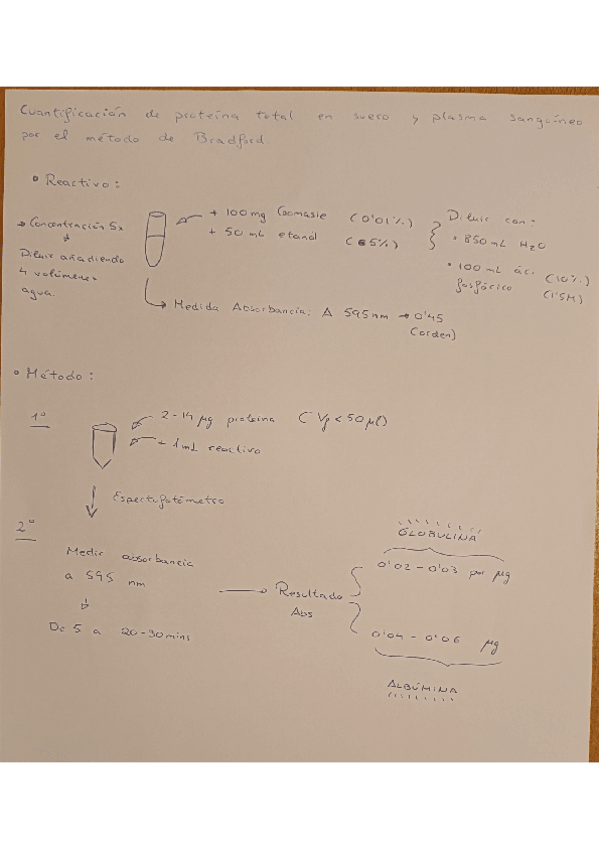 Cuantificación de proteína total en suero y plasma sanguíneo
por el método de Bradford
• Reactivo:
→ Concentración 5x
Diluir añadiendo
4 volúmenes
agua.
+ 100 mg Coomasie (0'01%)
+ 50 mL etanol (5%)
Diluir con:
• 850 mL H2O
• 100 mL ác. (10%)
fosfórico (1'5M)
Medida Absorbancia: A 595 nm → 0'45
(orden)
• Método:
1º
2-14 µg proteína (Vp < 50 µl)
+ 1 mL reactivo
Espectofotómetro
2º
Medir absorbancia
a 595 nm
De 5 a 20-30 mins
Resultado
Abs
GLOBULINA
0'02 - 0'03 por µg
0'04 - 0'06 µg
ALBÚMINA